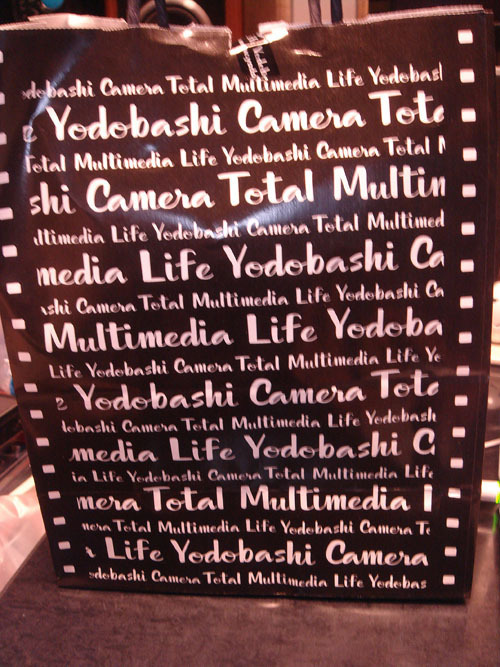 dobashi Camera Total Multimedia Life Yodobas
Yodobashi Camera Tota
Total Multimedia Life Yodobashi Camera Total
shi Camera Total Multim
ltimedia Life Yodobashi Camera Total Multimed
media Life Yodobashi Ca
shi Camera Total Multimedia Life Yodobashi Ca
Multimedia Life Yodoba
Life Yodobashi Camera Total Multimedia Life Yo
Yodobashi Camera Tota
dobashi Camera Total Multimedia Life Yodobash
media Life Yodobashi C
ia Life Yodobashi Camera Total Multimedia Life
mera Total Multimedia
mera Total Multimedia Life Yodobashi Camera To
Life Yodobashi Camera
odobashi Camera Total Multimedia Life Yodobas